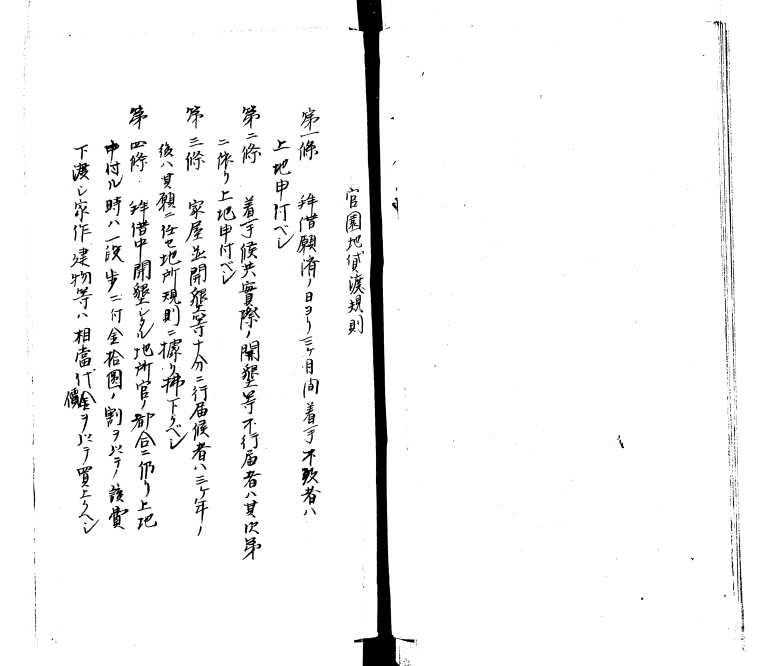 官園地貸渡規則
第一條 拜借願済ノ日ヨリ三ヶ月間着手不致者ハ
上地申付ベシ
第二條 着手候共實際ノ開墾等不行届者ハ其次第
ニ依リ上地申付ベシ
第三條 家屋並開墾等十分ニ行届候者ハ三ヶ年ノ
後ハ其願ニ任セ地所規則ニ據リ拂下クベシ
第四條 拜借中開墾シタル地所官ノ都合ニ仍リ上地
申付ル時ハ一段歩ニ付金拾圓ノ割ヲ以テ該費
下渡シ家作建物等ハ相當代價金ヲ以テ買上クヘシ